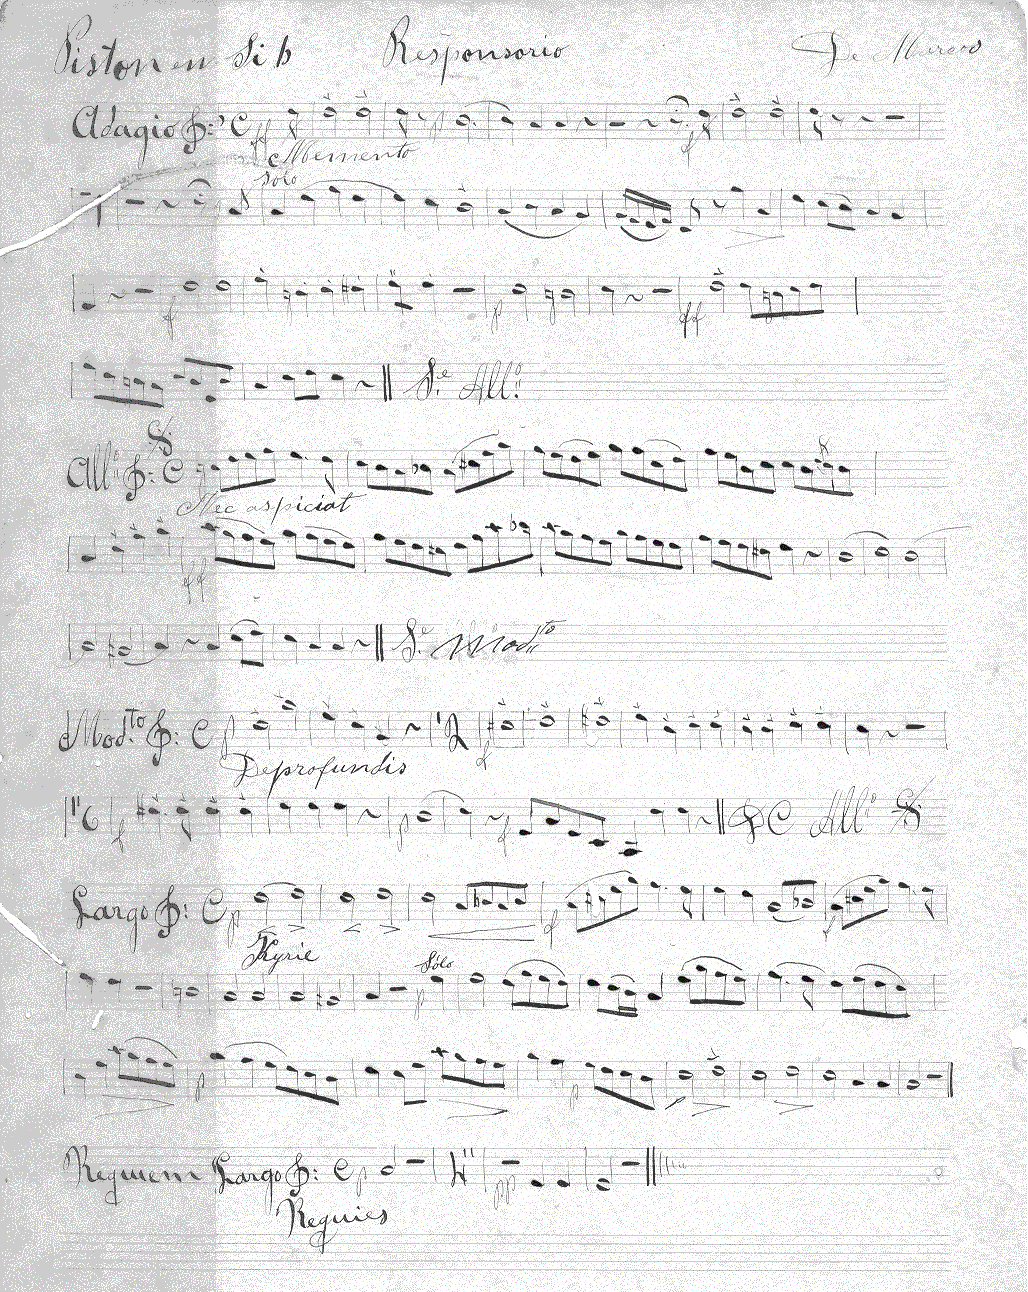 Piston en Si b Responsorio De Marcos
Adagio C ff
Memento
Solo
f p ff
Se. Allo.
Allo. C
Nec aspiciat
ff
Se. Modto
Modto. C p 12 f
Deprofundis
6 f p f DC Allo
Largo C p f f
Kyrie
Solo p
p p
Requiem Largo C p 4 pp
Requies